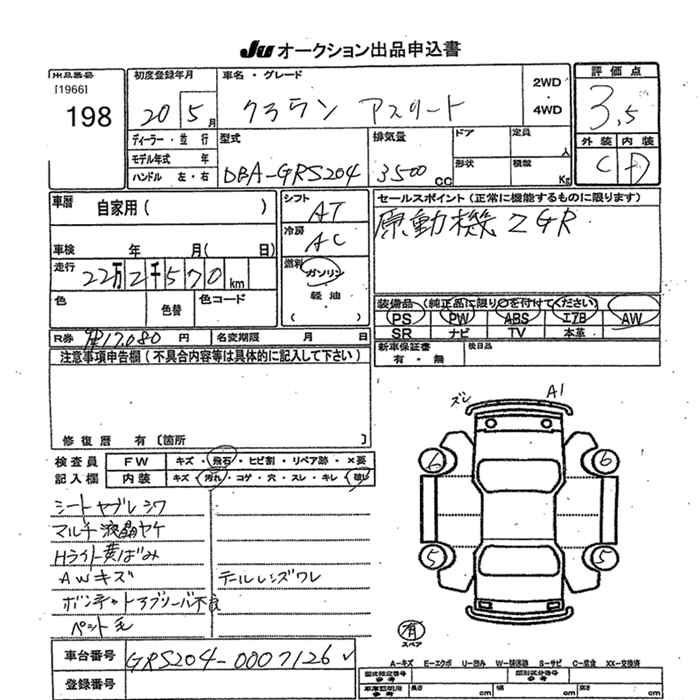 JU オークション出品申込書
出品番号
[1966]
198
初度登録年月
20 5月
車名・グレード
クラウン アスリート
2WD
・
4WD
評価点
3.5
外装 内装
C D
ディーラー・並行
モデル年式 年
ハンドル 左・右
型式
DBA-GRS204
排気量
3500cc
ドア
形状
定員 人
積載 Kg
車歴 自家用( )
車検 年 月( 日)
走行 22万2千570km
色 色替 色コード
シフト AT
冷房 AC
燃料
ガソリン
軽油
( )
セールスポイント(正常に機能するものに限ります)
原動機 2GR
装備品(純正品に限り○を付けてください)
PS PW ABS エアB AW
SR ナビ TV 本革
新車保証書
有・無
後日品
R券 17,080円 名変期限 月 日
注意事項申告欄(不具合内容等は具体的に記入して下さい)
修復歴 有〔箇所 〕
検査員 FW キズ・飛石・ヒビ割・リペア跡・×要
記入欄 内装 キズ・汚れ・コゲ・穴・スレ・キレ・破レ
シートヤブレ シワ
マルチ液晶ヤケ
Hライト黄ばみ
AWキズ テールレンズワレ
ボンネットアブソーバ不良
ペット毛
ズレ A1
6 6
5 5
有
スペア
車台番号 GRS204-0007126
登録番号
A-キズ E-エクボ U-凹み W-補修跡 S-サビ C-腐食 XX-交換済
型式指定番号
参考
類別区分番号
参考
車庫証明用
参考
長さ cm 幅 cm 高さ cm